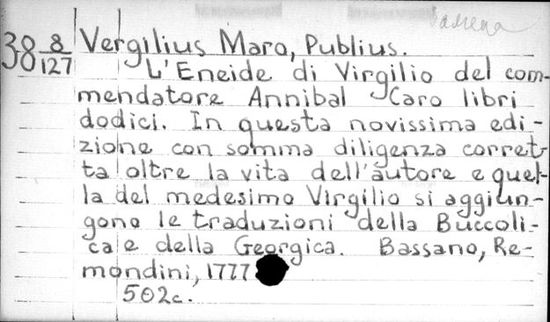 38 8/127 Vergilius Maro, Publius.
L'Eneide di Virgilio del com-
mendatore Annibal Caro libri
dodici. In questa novissima edi-
zione con somma diligenza corret-
ta oltre la vita dell'autore e quel-
la del medesimo Virgilio si aggiun-
gono le traduzioni della Buccoli-
ca e della Georgica. Bassano, Re-
mondini, 1777
502c.